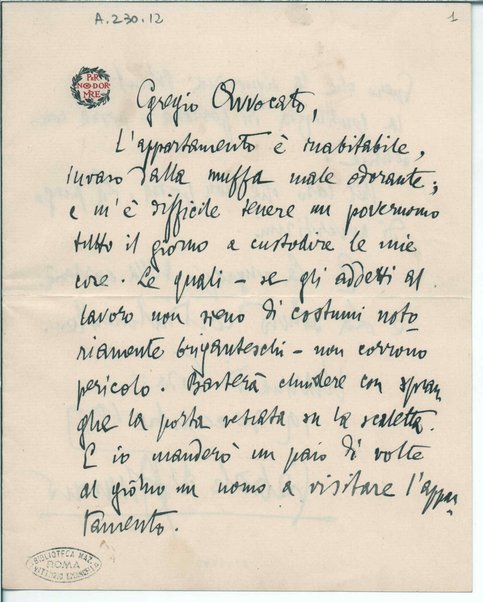 A.230.12
1
PER
NON DOR
MIRE
Egregio Avvocato,
L'appartamento è inabitabile,
invaso dalla muffa male odorante;
e m'è difficile tenere un pover uomo
tutto il giorno a custodire le mie
cose. Le quali – se gli addetti al
lavoro non sieno di costumi noto
riamente briganteschi – non corrono
pericolo. Basterà chiudere con spran
ghe la porta vetrata su la scaletta.
E io manderò un paio di volte
al giorno un uomo a visitare l'appar
tamento.
BIBLIOTECA NAZ.
ROMA
VITTORIO EMANUELE